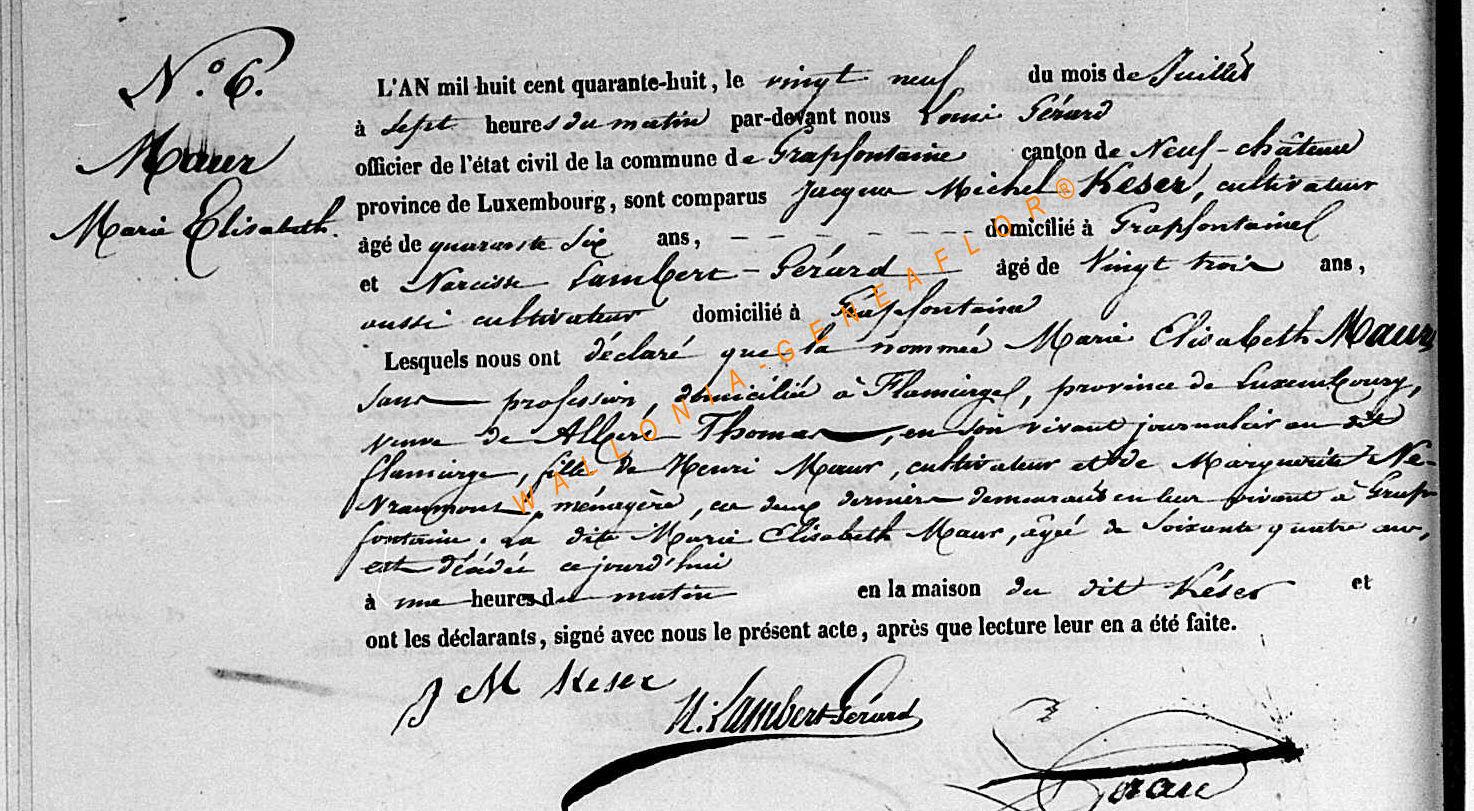 N.° 6.
Maur
Marie Elisabeth.
L'AN mil huit cent quarante-huit, le vingt neuf du mois de Juillet
à sept heures du matin par-devant nous Louis Gérard
officier de l'état civil de la commune de Grapfontaine canton de Neuf-château
province de Luxembourg, sont comparus Jacques Michel Keser, cultivateur
âgé de quarante six ans, - - - - - - - - domicilié à Grapfontaine
et Narcisse Lambert-Gérard âgé de Vingt trois ans,
aussi cultivateur domicilié à Grapfontaine
Lesquels nous ont déclaré que la nommée Marie Elisabeth Maur
sans profession, domiciliée à Flamierge, province de Luxembourg,
veuve de Albert Thomas, en son vivant journalier au dit
flamierge, fille de Henri Maur, cultivateur et de Marguerite Ne-
vraumont ménagère, ces deux derniers demeurant en leur vivant à Grap-
fontaine. La dite Marie Elisabeth Maur, âgée de soixante quatre ans,
est décédée cejourd'hui
à une heures du matin en la maison du dit Késer et
ont les déclarants, signé avec nous le présent acte, après que lecture leur en a été faite.
J M Keser
N. Lambert-Gérard
WALLONIA-GENEAFLOR®